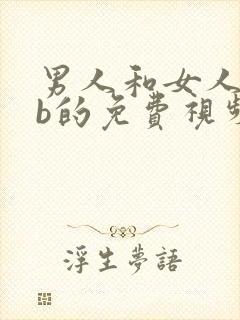 男人和女人
b的免费視频
浮生夢語